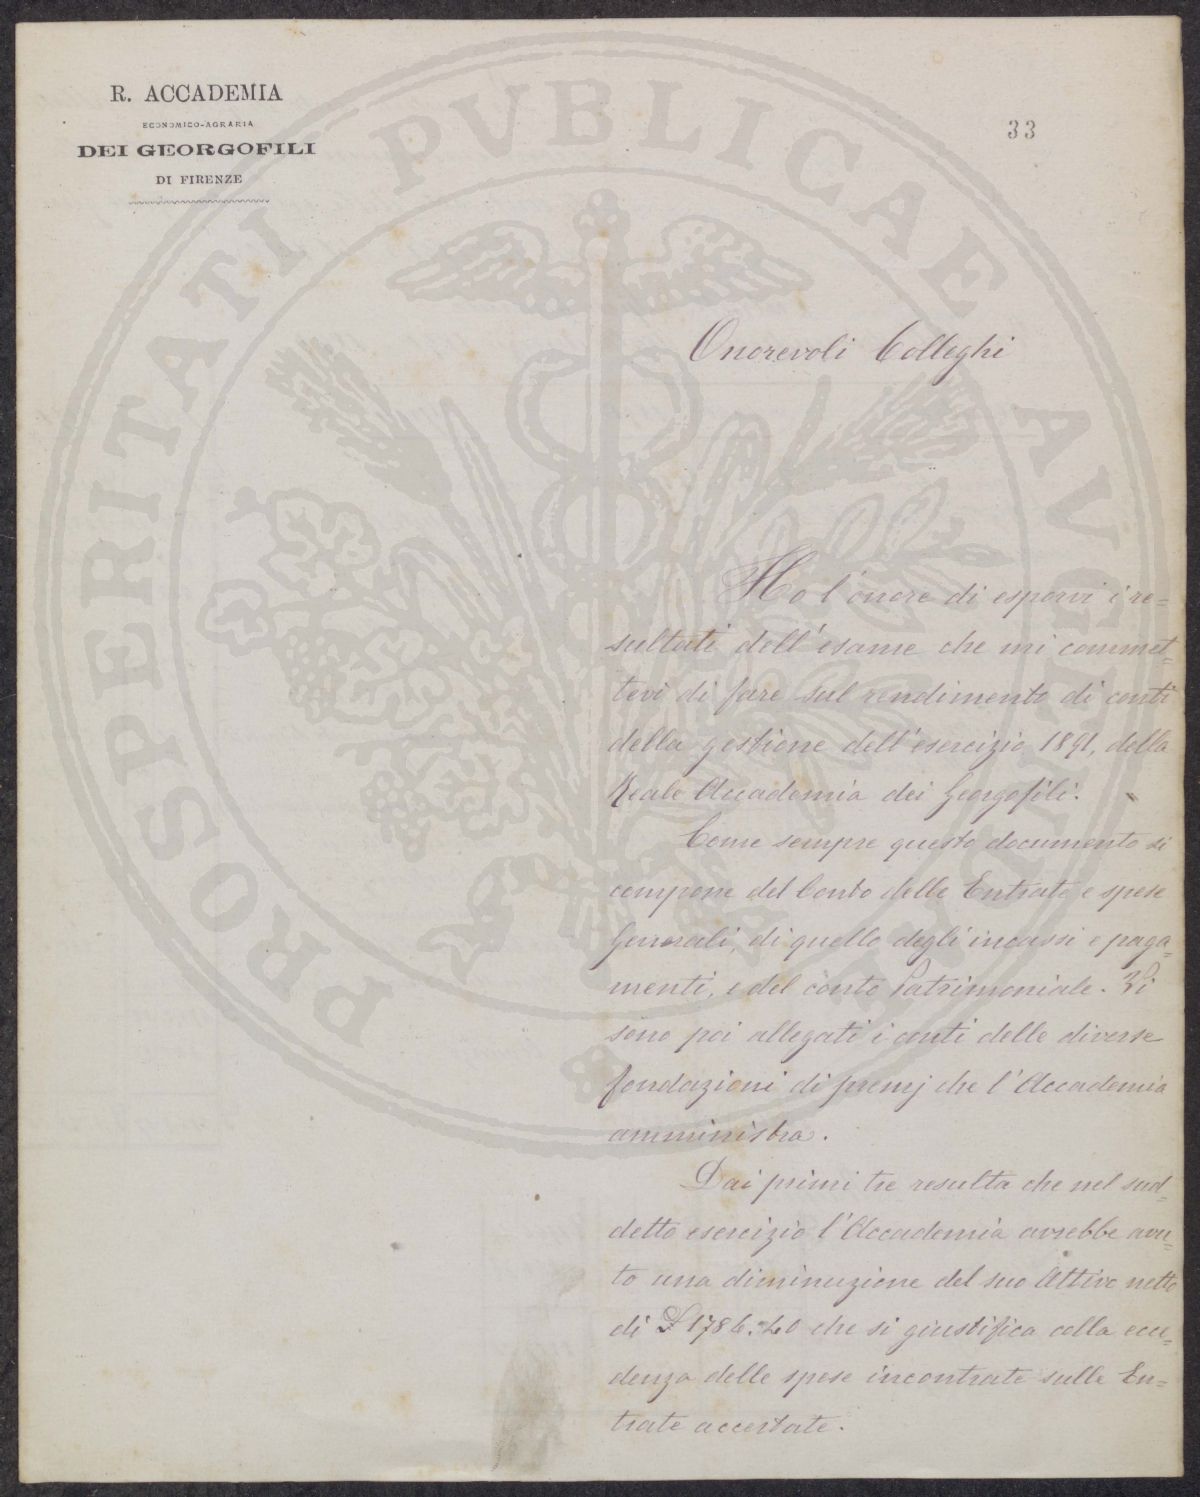 R. ACCADEMIA
ECONOMICO-AGRARIA
DEI GEORGOFILI
DI FIRENZE
33
PROSPERITATI PVBLICAE AVGENDAE
Onorevoli Colleghi
Ho l'onore di esporvi i re=
sultati dell'esame che mi commet=
tevi di fare sul rendimento di conti
della gestione dell'esercizio 1891, della
Reale Accademia dei Georgofili.
Come sempre questo documento si
compone del Conto delle Entrate e spese
Generali, di quello degli incassi e paga=
menti, e del conto Patrimoniale. Vi
sono poi allegati i conti delle diverse
fondazioni di premj che l'Accademia
amministra.
Dai primi tre resulta che nel sud=
detto esercizio l'Accademia avrebbe avu=
to una diminuzione del suo Attivo netto
di £ 1786.40 che si giustifica colla ecce=
denza delle spese incontrate sulle En=
trate accertate.